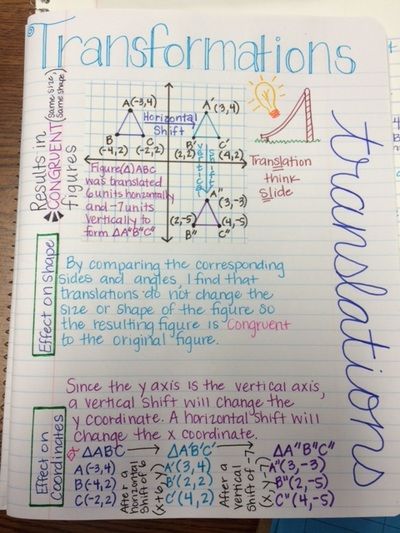 Transformations
translations
Results in
CONGRUENT (same size, same shape)
figures
A(-3,4)
B
(-4,2)
C
(-2,2)
Horizontal
Shift
A'(3,4)
B'
(2,2)
C'
(4,2)
vertical
shift
A"
(3,-3)
(2,-5)
B"
(4,-5)
C"
Translation
think
Slide
Figure(Δ)ABC
was translated
6 units horizontally
and -7 units
vertically to
form ΔA"B"C"
Effect on Shape
By comparing the corresponding
sides and angles, I find that
translations do not change the
size or shape of the figure so
the resulting figure is congruent
to the original figure.
Effect on
Coordinates
Since the y axis is the vertical axis,
a vertical shift will change the
y coordinate. A horizontal shift will
change the x coordinate.
ΔABC
A(-3,4)
B(-4,2)
C(-2,2)
After a
horizontal
shift of 6
(x+6, y)
ΔA'B'C'
A'(3,4)
B'(2,2)
C'(4,2)
After a
vertical
shift of -7
(x, y-7)
ΔA"B"C"
A"(3,-3)
B"(2,-5)
C"(4,-5)